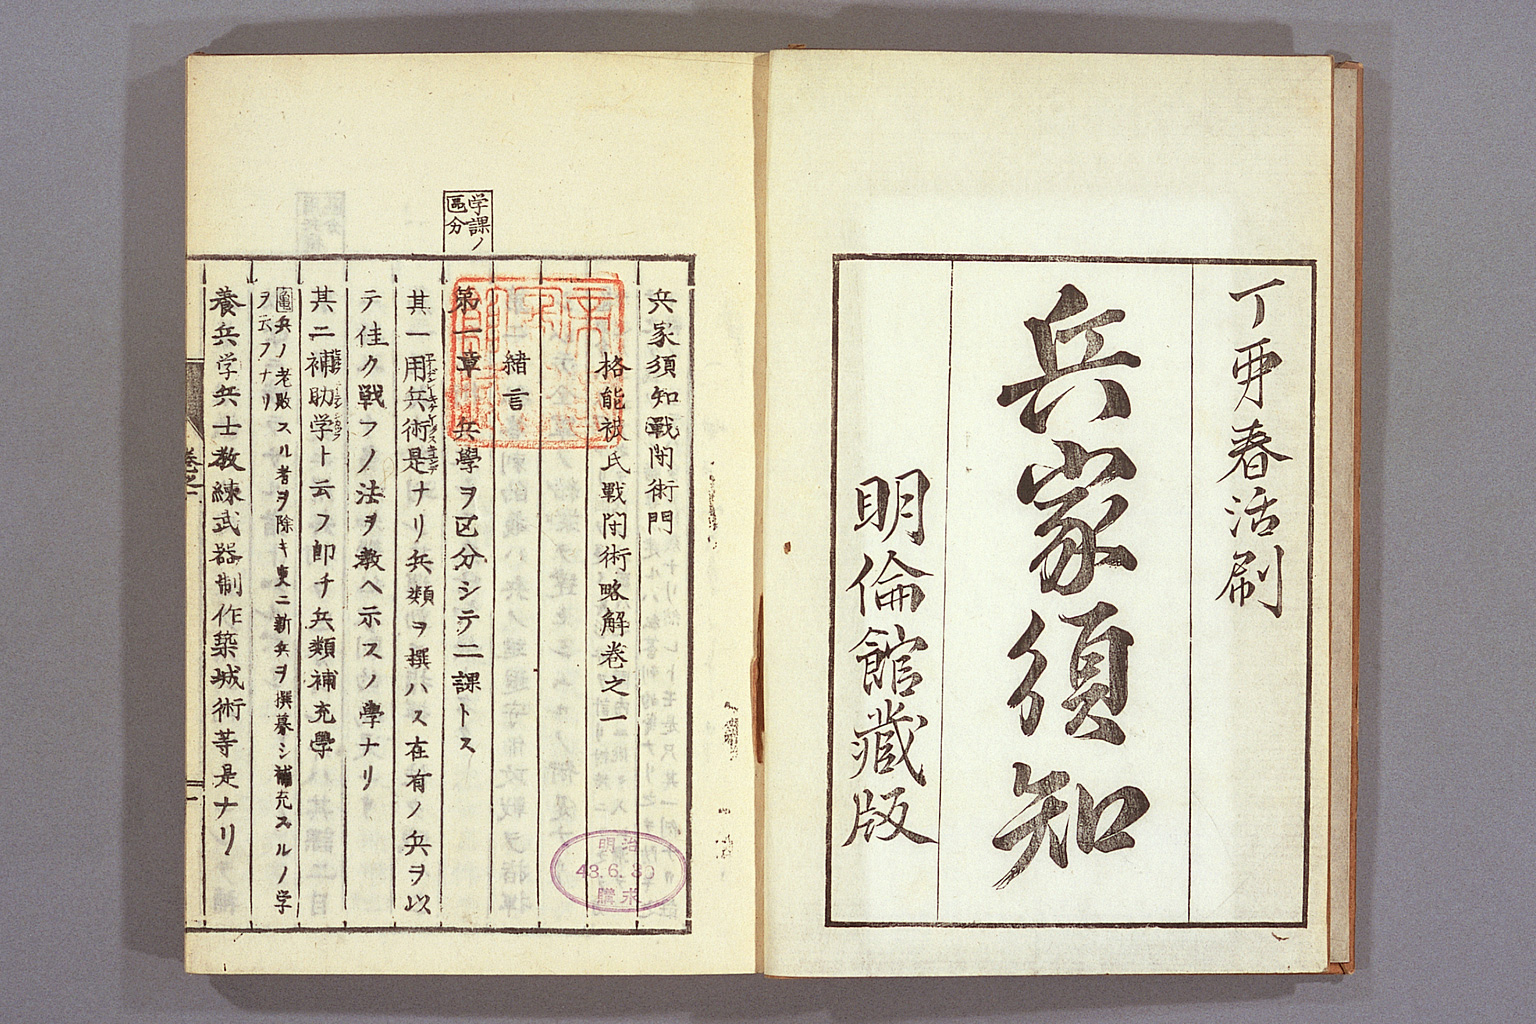 丁酉春活刷
兵家須知
明倫館藏版
兵家須知戰闘術門
格能被氏戰闘術略解卷之一
緒言
学課ノ
区分
第一章 兵學ヲ区分シテ二課トス
其一用兵術是ナリ兵類ヲ撰ハス在有ノ兵ヲ以
テ佳ク戰フノ法ヲ教ヘ示スノ學ナリ
其二補助学ト云フ即チ兵類補充學
兵ノ老敗スル者ヲ除キ更ニ新兵ヲ撰募シ補充スルノ学
ヲ云フナリ
養兵学兵士教練武器制作築城術等是ナリ
卷之一
一
明治
43.6.30
購求